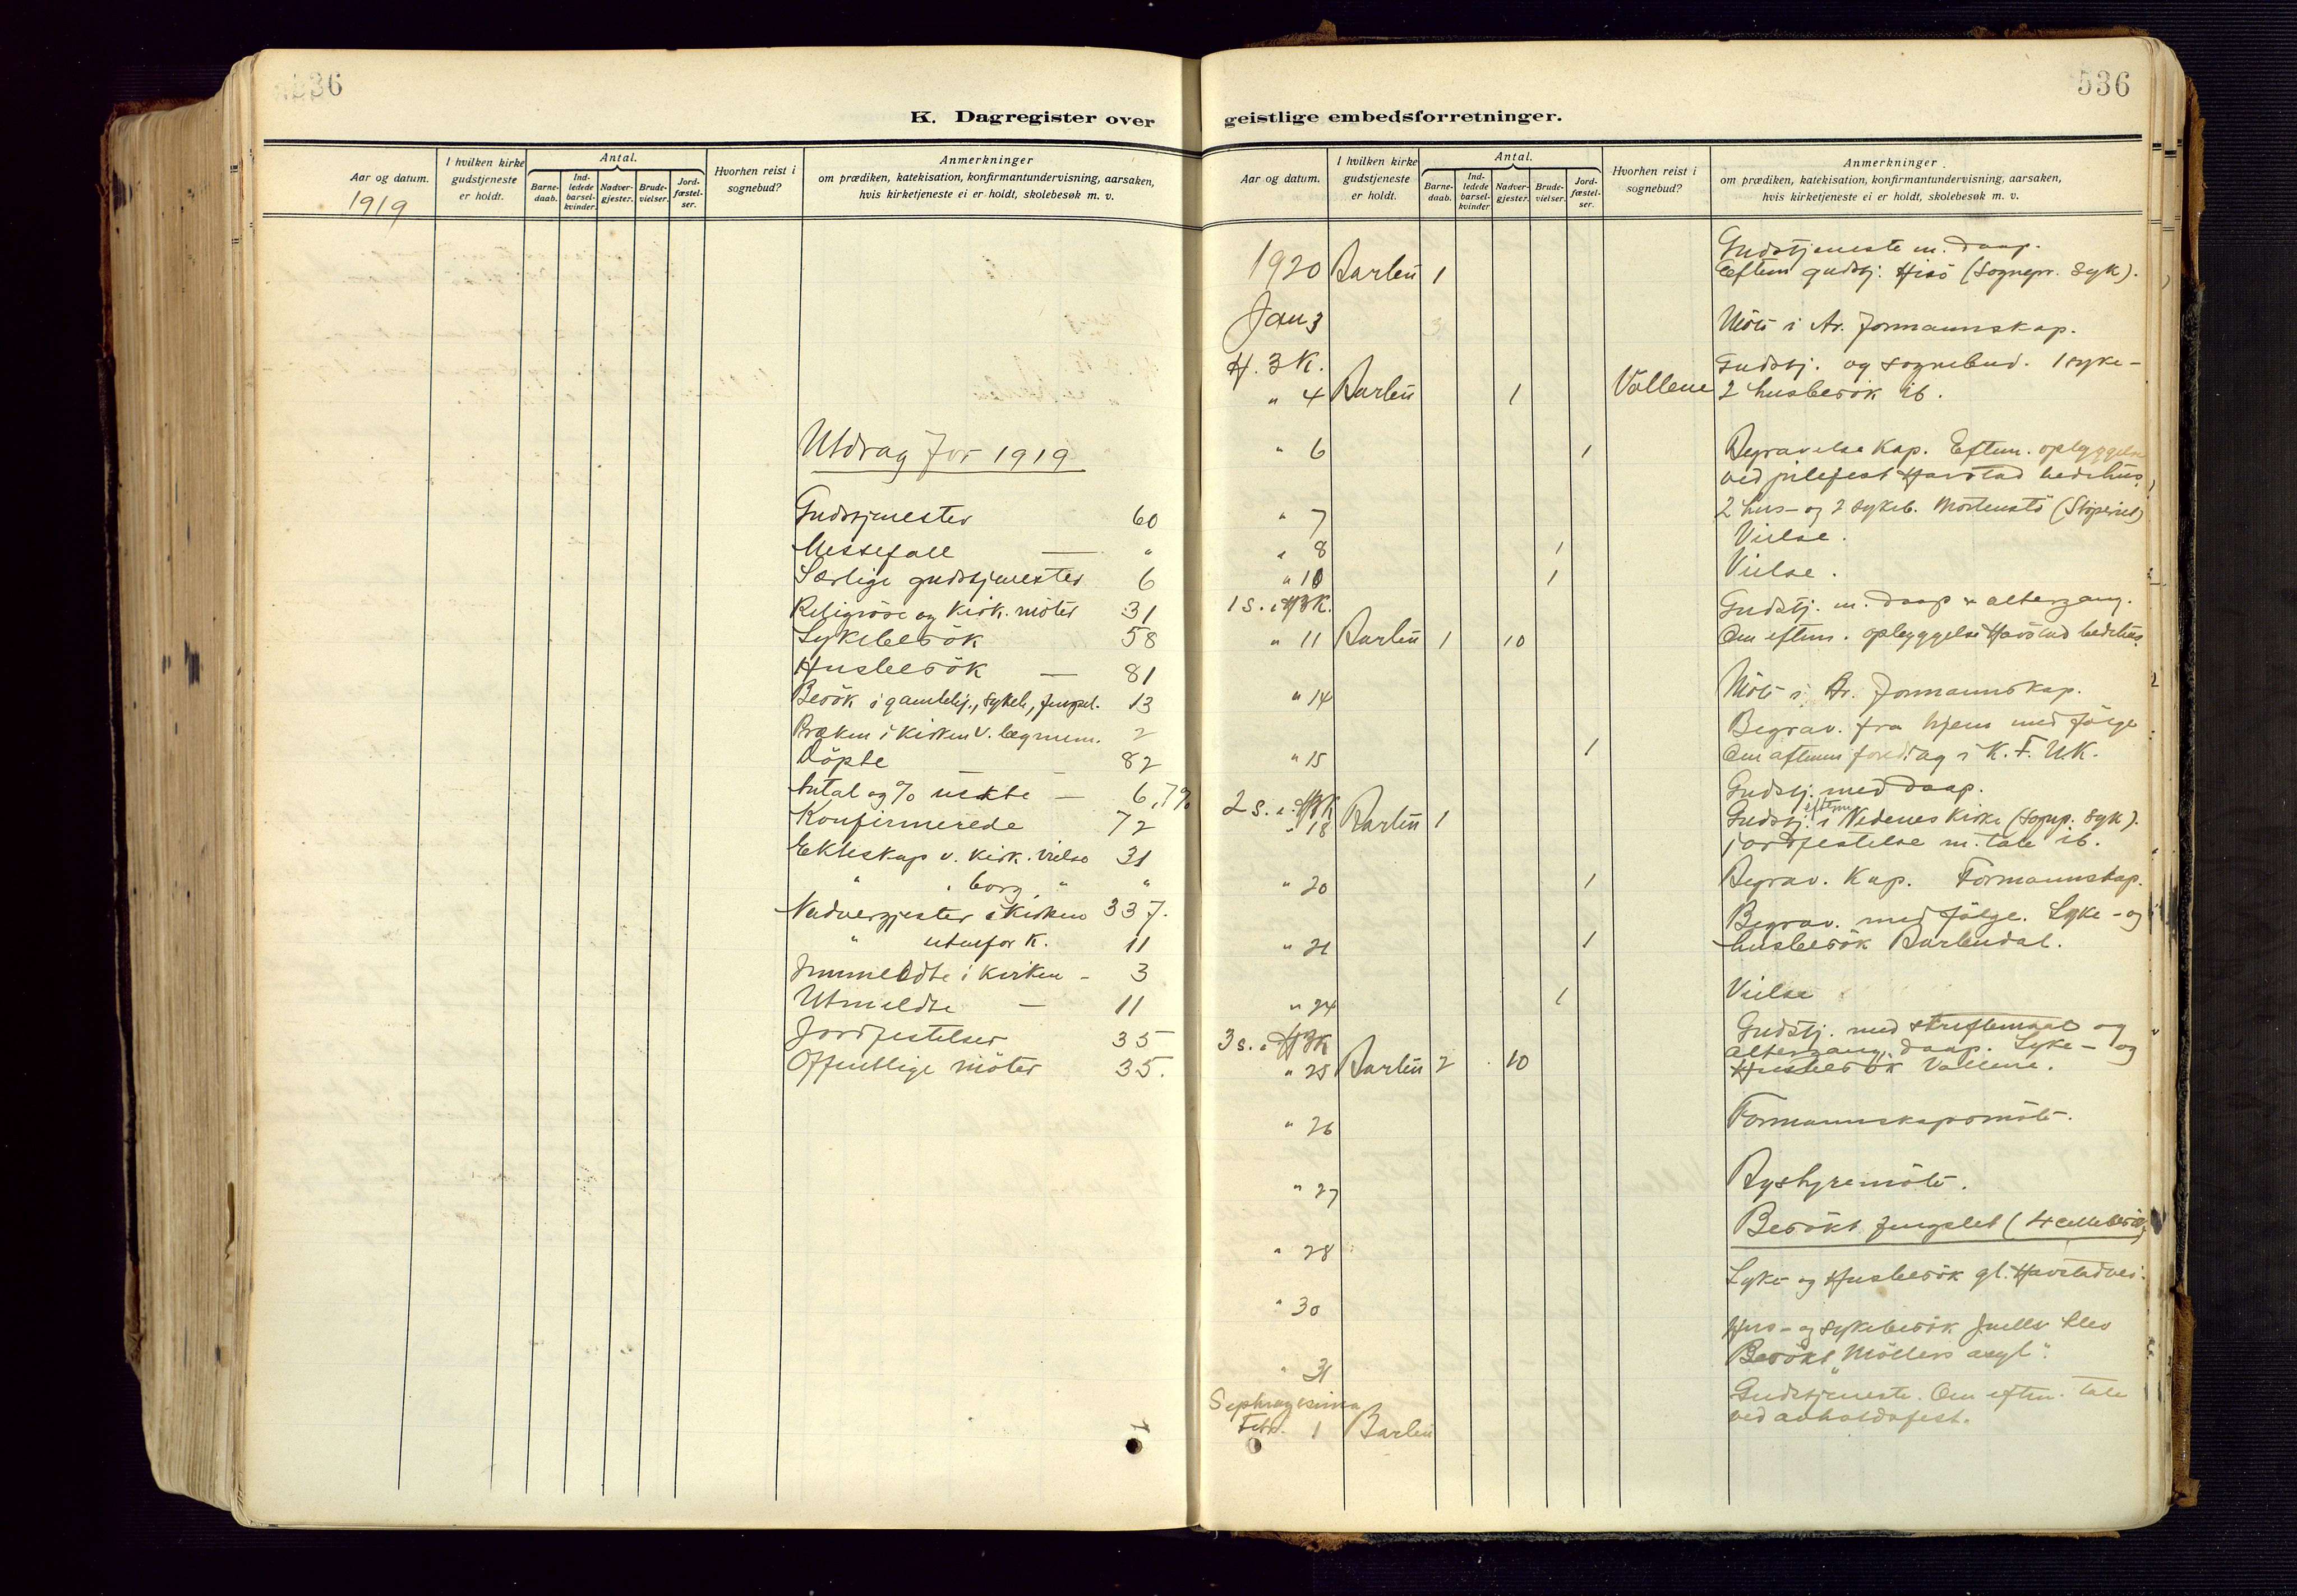 536
K. Dagregister over
Aar og datum.
1919
I hvilken kirke
gudstjeneste
er holdt.
Antal.
Barne-
daab.
Ind-
ledede
barsel-
kvinder
Nadver-
gjester.
Brude-
vielser.
Jord-
fæstel-
ser.
Hvorhen reist i
sognebud?
Anmerkninger
om prædiken, katekisation, konfirmantundervisning, aarsaken,
hvis kirketjeneste ei er holdt, skolebesøk m. v.
Utdrag for 1919
Gudstjenester 60
Messefall — "
Særlige gudstjenester 6
Religiöse og kirk. möter 31
Sykebesök 58
Husbesök — 81
Besök i gamlehj., sykeh., fengsel. 13
Præken i kirken v. legmenn. 2
Döpte 82
Antal og % uekte — 6, 7%
Konfirmerede 72
Ekteskap v. kirk. vielse 31
" " borg. " "
Nadvergjester i kirken 337.
" utenfor K. 11
Innmeldte i kirken - 3
Utmeldte — 11
Jordfestelser 35
Offentlige möter 35.
536
geistlige embedsforretninger.
Aar og datum.
I hvilken kirke
gudstjeneste
er holdt.
Antal.
Barne-
daab.
Ind-
ledede
barsel-
kvinder
Nadver-
gjester.
Brude-
vielser.
Jord-
fæstel-
ser.
Hvorhen reist i
sognebud?
Anmerkninger
om prædiken, katekisation, konfirmantundervisning, aarsaken,
hvis kirketjeneste ei er holdt, skolebesøk m. v.
Gudstjeneste m. daap.
1920 Barbu 1 Eftem gudstj. Hisö (Sognepr. syk).
Jan 3 Möte i Ar. formannskap.
H. 3 K. Gudstj. og sognebud. 1 syke-
" 4 Barbu 1 Vollene 2 husbesök ib.
" 6 1 Begravelse Kap. Eftem. opbyggelse
ved julefest Havstad bedehus.
" 7 2 hus- og 2 sykeb.
" 8 1 Vielse.
" 10 1 Vielse.
1 s. e. H3K. Gudstj. m. daap & altergang.
" 11 Barbu 1 10 Om eftem. opbyggelse Havstad bedehus.
" 14 Möte i Ar. formannskap.
Begrav. fra hjem med fölge
" 15 1 Om aftenen foredrag i K. F. U.K.
Gudstj. med daap.
2 s. e. H3K
" 18 Barbu 1 Gudstj. eftem i Nedenes kirke (Sognp. syk).
jordfestelse m. tale ib.
" 20 1 Begrav. Kap. Formannskap.
Begrav. med fölge. Syke- og
" 21 1 husbesök Barbudal.
" 24 1 Vielse
3 s. e. H3K Gudstj. med skriftemaal og
altergang, daap. Syke- og
" 25 Barbu 2 10 Husbesök Vollene.
" 26 Formannskapsmöte.
" 27 Bystyremöte.
" 28 Besökt fengslet (4 cellebesök)
" 30 Syke- og Husbesök gl. Havstadvei.
Hus- og sykebesök
" 31 Besökt "Möllers asyl".
Septuagesima Gudstjeneste. Om eftem. tale
Febr. 1 Barbu ved avholdsfest.